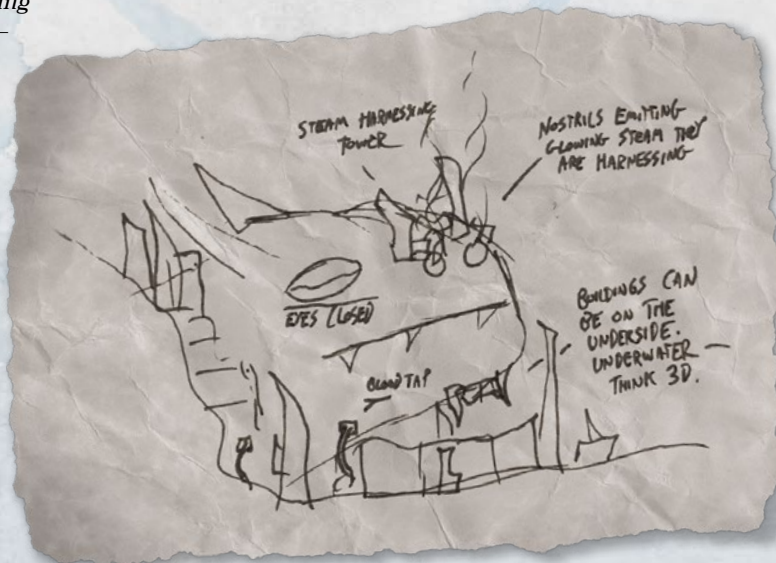 ing
STEAM HARNESSING
TOWER
NOSTRILS EMITTING
GLOWING STEAM THEY
ARE HARNESSING
EYES CLOSED
BLOOD TAP
BUILDINGS CAN
BE ON THE
UNDERSIDE.
UNDERWATER
THINK 3D.